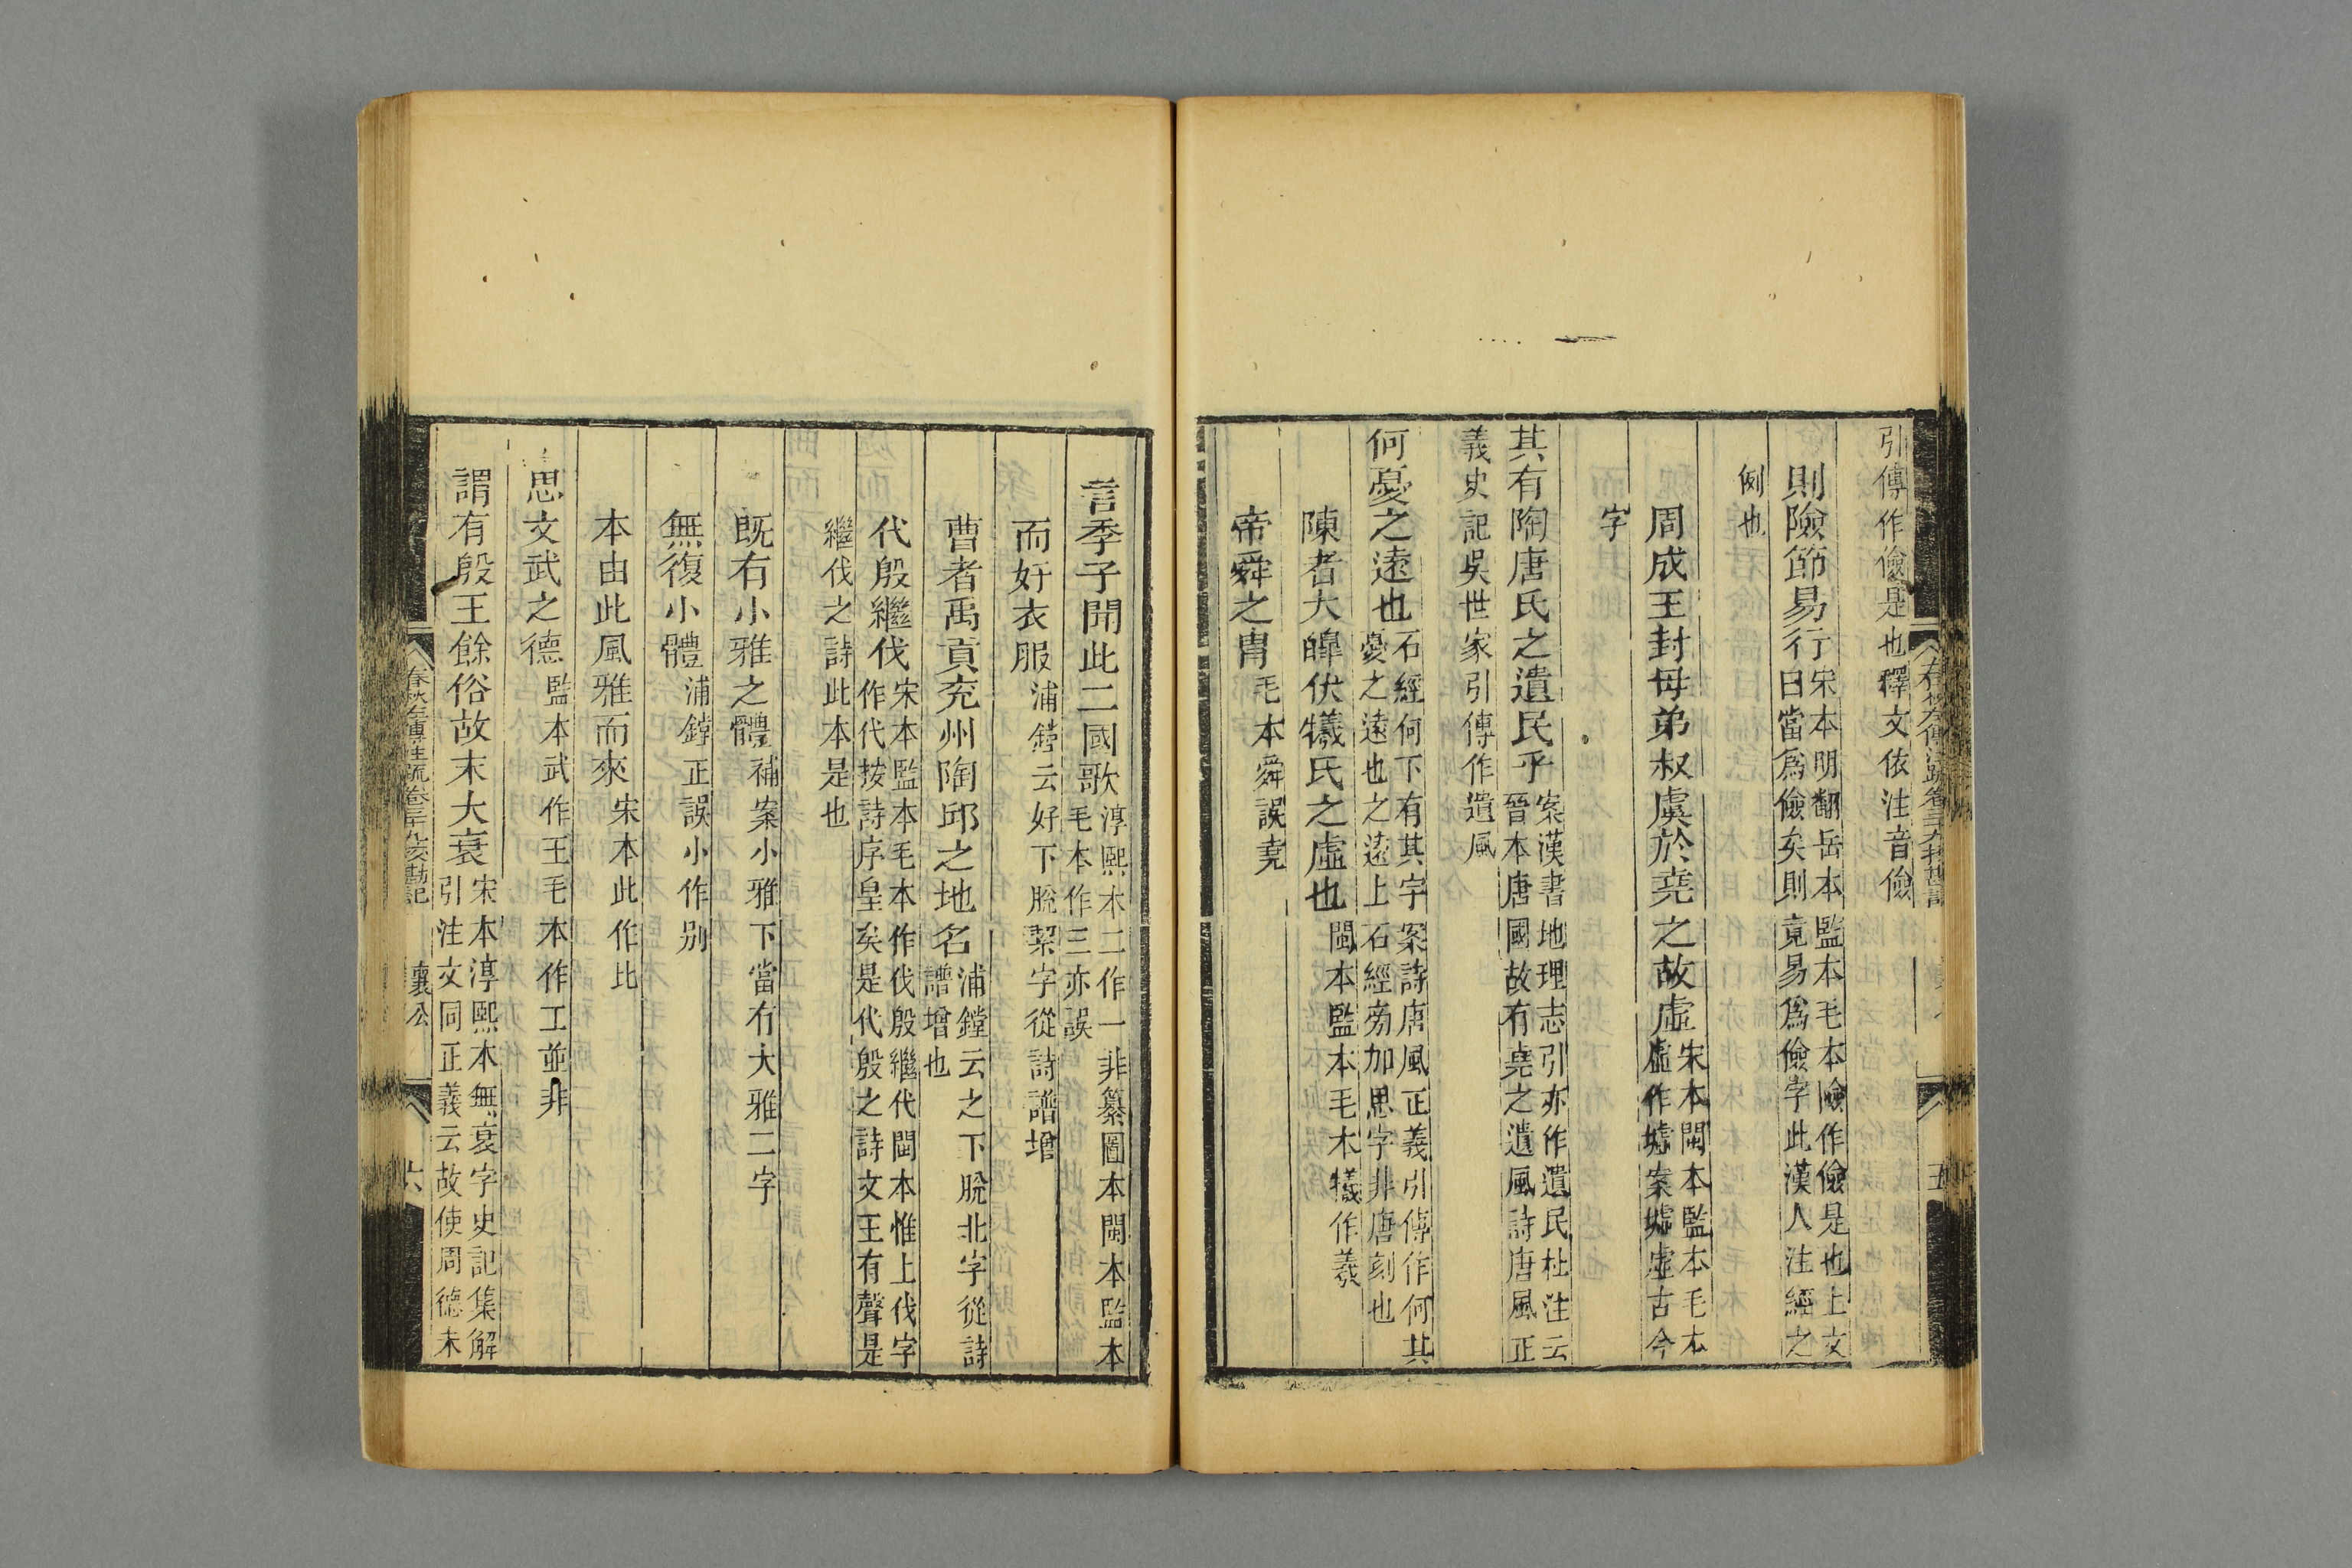 引傳作儉是也釋文依注音儉
則險節易行宋本明翻岳本監本毛本險作儉是也上文
曰當爲儉矣則竟易爲儉字此漢人注經之
例也
周成王封母弟叔虞於堯之故虛宋本閩本監本毛本
虛作墟案墟虛古今
字
其有陶唐氏之遺民乎案漢書地理志引亦作遺民杜注云
晉本唐國故有堯之遺風詩唐風正
義史記吳世家引傳作遺風
何憂之遠也石經何下有其字案詩唐風正義引傳作何其
憂之遠也之遠上石經旁加思字非唐刻也
陳者大皡伏犧氏之虛也閩本監本毛本犧作羲
帝舜之胄毛本舜誤堯
言季子聞此二國歌淳熙本二作一非纂圖本閩本監本
毛本作三亦誤
而好衣服浦鏜云好下脫絜字從詩譜增
曹者禹貢兖州陶邱之地名浦鏜云之下脫北字從詩
譜增也
代殷繼伐宋本監本毛本作伐殷繼代閩本惟上伐字
作代按詩序皇矣是代殷之詩文王有聲是
繼伐之詩此本是也
既有小雅之體補案小雅下當有大雅二字
無復小體浦鏜正誤小作别
本由此風雅而來宋本此作比
思文武之德監本武作王毛本作工並非
謂有殷王餘俗故未大衰宋本淳熙本無衰字史記集解
引注文同正義云故使周德未
春秋左傳注疏卷三十九挍勘記
襄公
六